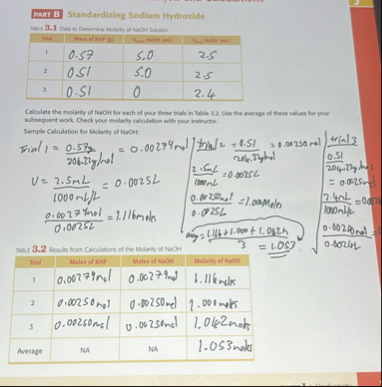 PART B Standardizing Sodium Hydroxide
TABLE 3.1 Data to Determine Molarity of NaOH Solution
Trial Mass of KHP (g) NaOH (mL) NaOH (mL)
1 0.57 5.0 2.5
2 0.51 5.0 2.5
3 0.51 0 2.4
Calculate the molarity of NaOH for each of your three trials in Table 3.2. Use the average of these values for your
subsequent work. Check your molarity calculation with your instructor.
Sample Calculation for Molarity of NaOH:
Trial 1 = 0.57g = 0.00279mol
V = 2.5mL = 0.0025L
1000 mL/L
0.00279mol = 1.116mols
0.0025L
trial 2 = 0.51 = 0.00250mol
2.5mL = 0.0025L
1000mL
0.00250mol = 1.000mols
0.0025L
avg = 1.116 + 1.000 + 1.042 = 1.053
3
trial 3
0.51
= 0.0025mol
2.4mL
1000mL/L
TABLE 3.2 Results from Calculations of the Molarity of NaOH
Trial Moles of KHP Moles of NaOH Molarity of NaOH
1 0.00279mol 0.00279mol 1.116mols
2 0.00250mol 0.00250mol 1.000mols
3 0.00250mol 0.00250mol 1.042mols
Average NA NA 1.053mols